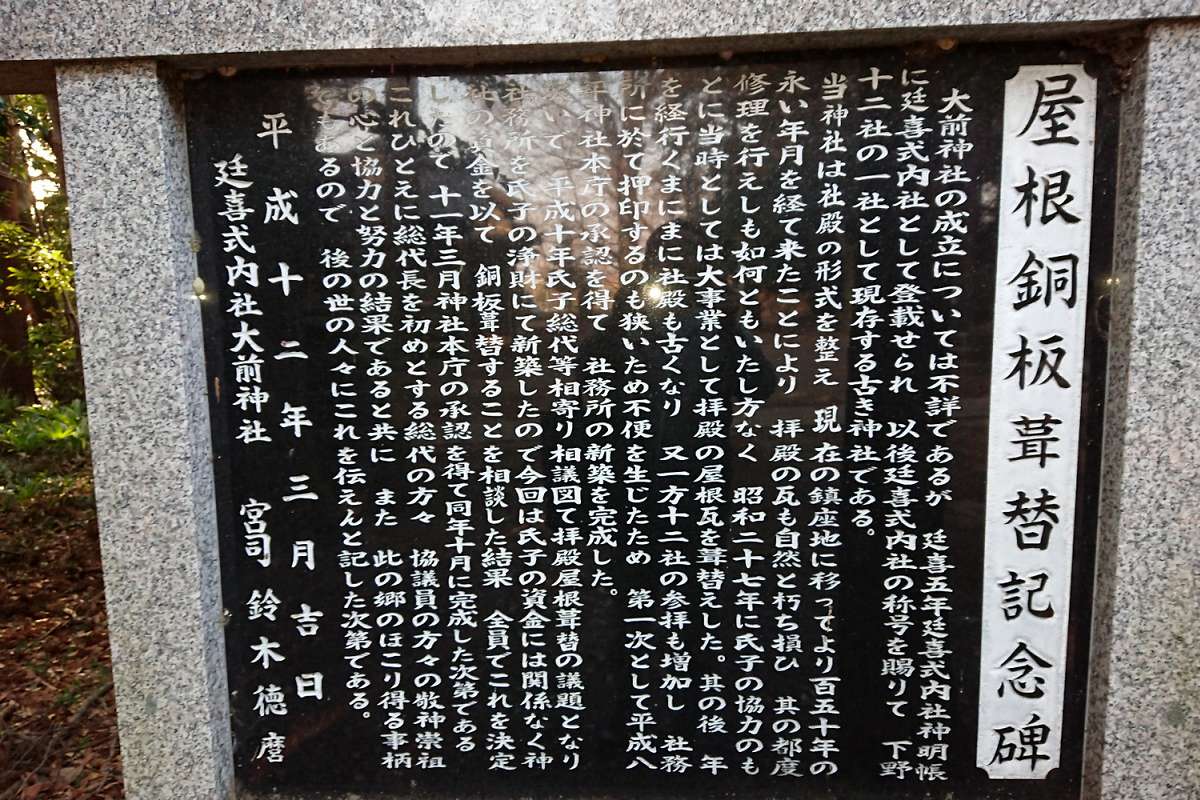 屋根銅板葺替記念碑
大前神社の成立については不詳であるが 廷喜五年廷喜式内社神明帳
に廷喜式内社として登載せられ 以後廷喜式内社の称号を賜りて 下野
十二社の一社として現存する古き神社である。
当神社は社殿の形式を整え 現在の鎮座地に移つてより百五十年の
永い年月を経て来たことにより 拝殿の瓦も自然と朽ち損ひ 其の都度
修理を行えしも如何ともいたし方なく 昭和二十七年に氏子の協力のも
とに当時としては大事業として拝殿の屋根瓦を葺替えした。其の後 年
を経行くまにまに社殿も古くなり 又一方十二社の参拝も増加し 社務
所に於て押印するのも狭いため不便を生じたため 第一次として平成八
年神社本庁の承認を得て 社務所の新築を完成した。
いて 平成十年氏子総代等相寄り相議図て拝殿屋根葺替の議題となり
社務所を氏子の浄財にて新築したので今回は氏子の資金には関係なく神
社の資金を以て 銅板葺替することを相談した結果 全員でこれを決定
したので 十一年三月神社本庁の承認を得て同年十月に完成した次第である
これひとえに総代長を初めとする総代の方々 協議員の方々の敬神崇祖
の心と協力と努力の結果であると共に また 此の郷のほこり得る事柄
るので 後の世の人々にこれを伝えんと記した次第である。
平成十二年三月吉日
廷喜式内社大前神社 宮司 鈴木徳麿